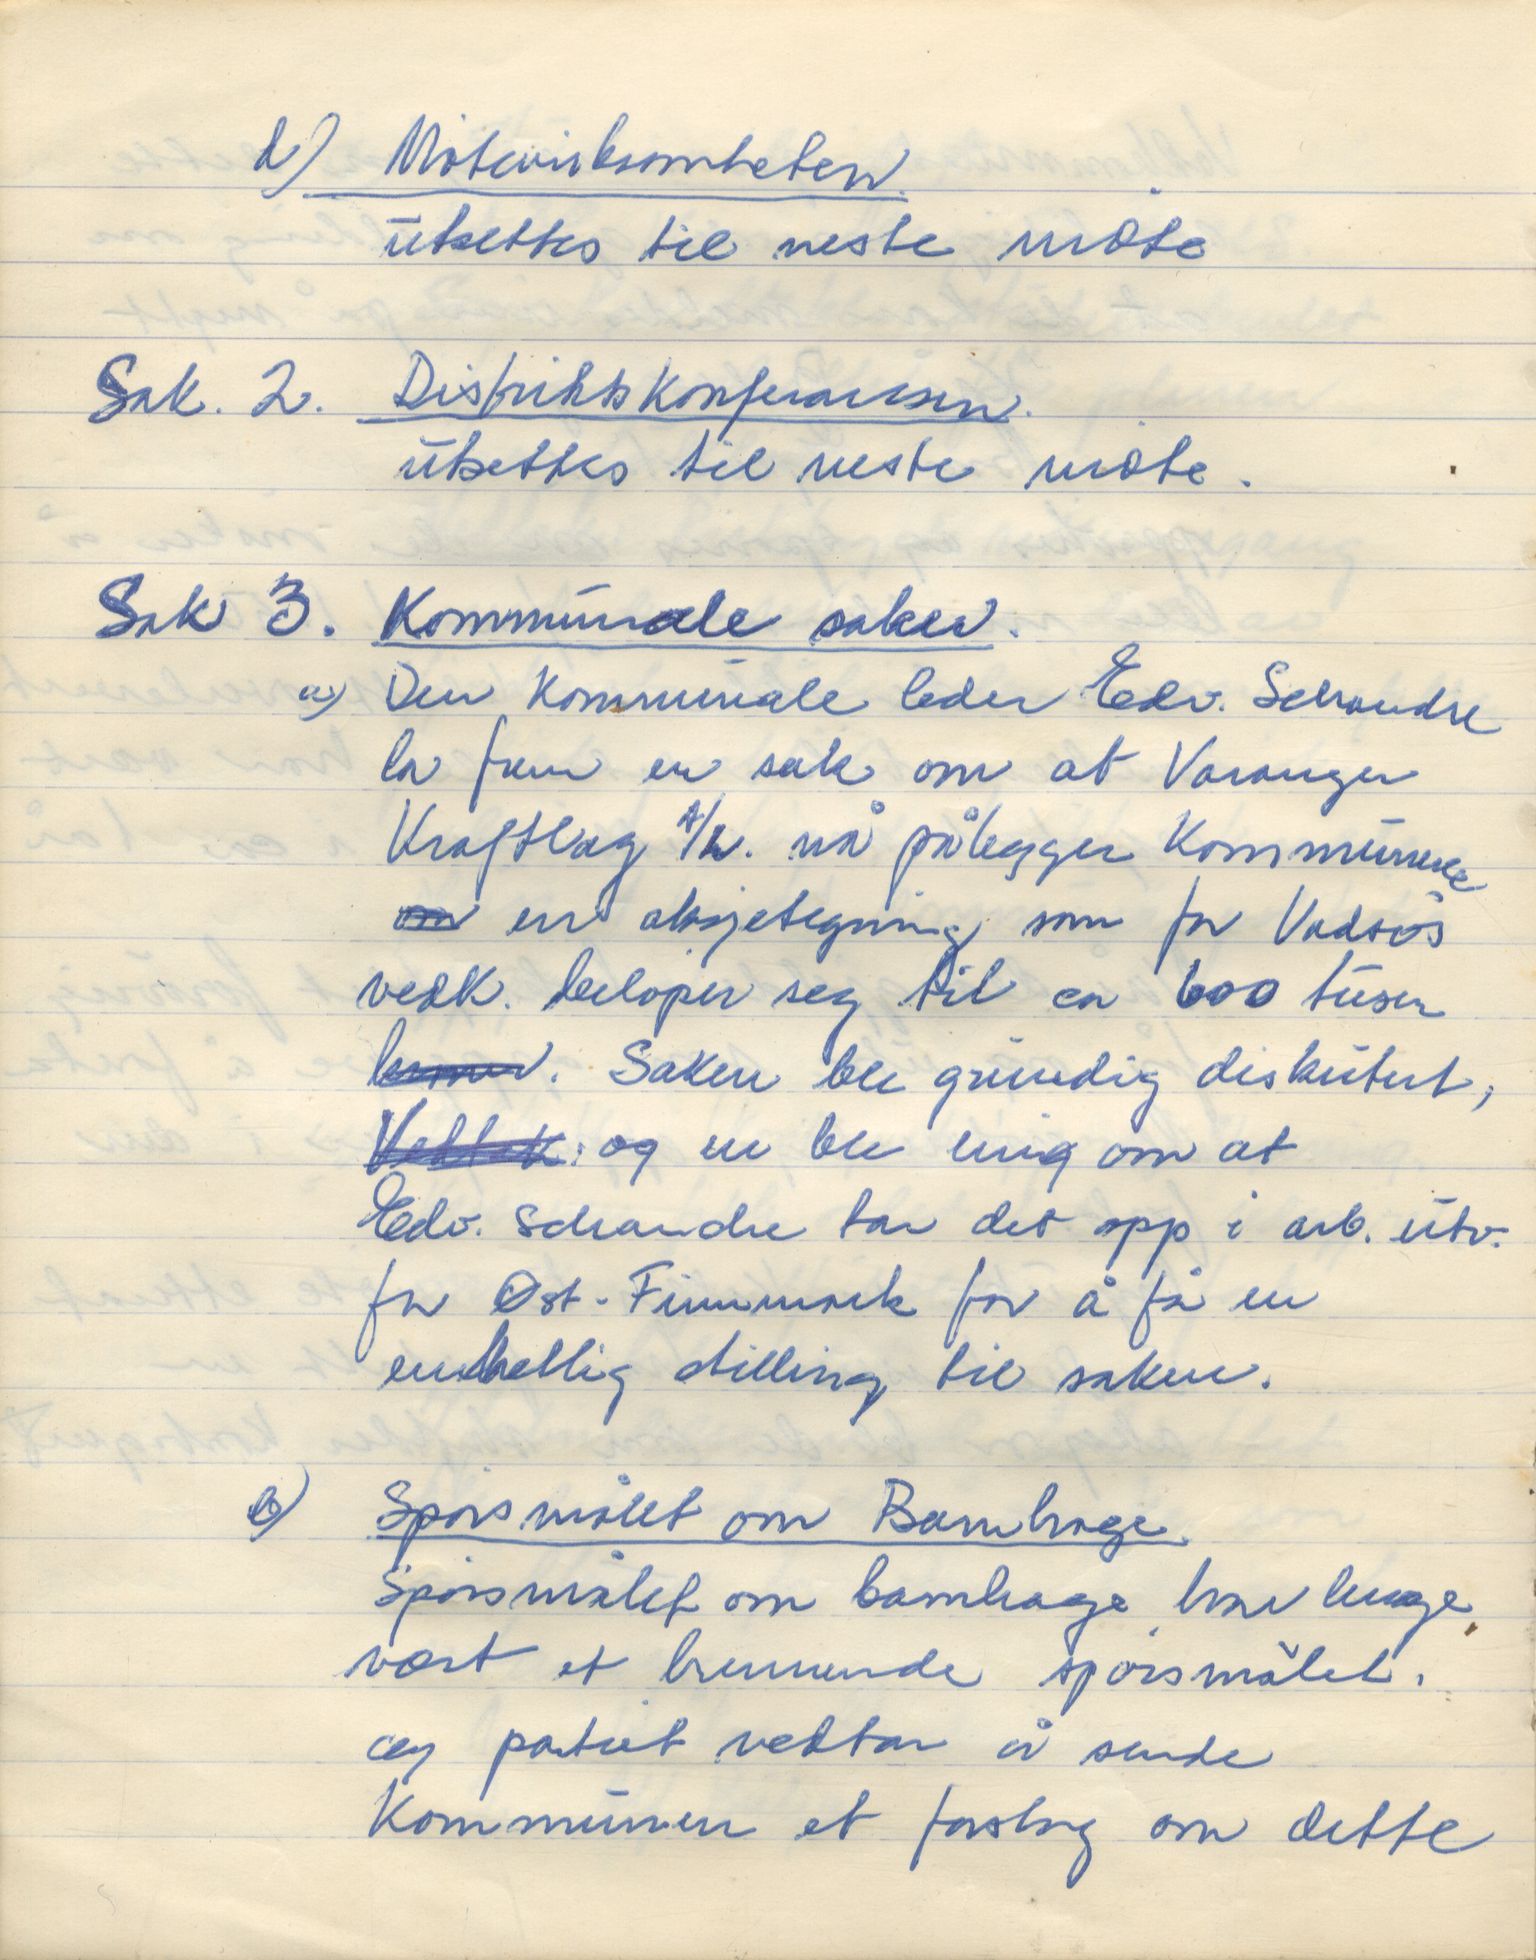 d) Møtevirksomheten.
utsettes til neste møte
Sak. 2. Distriktskonferansen.
utsettes til neste møte.
Sak 3. Kommunale saker.
a) Den kommunale leder Edv. Schandre
la frem en sak om at Varanger
Kraftlag A/L. nå pålegger kommunene
en aksjetegning som for Vadsøs
vedk. beløper seg til ca 600 tusen
kroner. Saken ble grundig diskutert,
og en ble enig om at
Edv. Schandre tar det opp i arb. utv.
for Øst-Finnmark for å få en
enhetlig stilling til saken.
b) Spørsmålet om Barnhage.
Spørsmålet om barnhage har lenge
vært et brennende spørsmålet.
og partiet vedtar å sende
Kommunen et forslag om dette